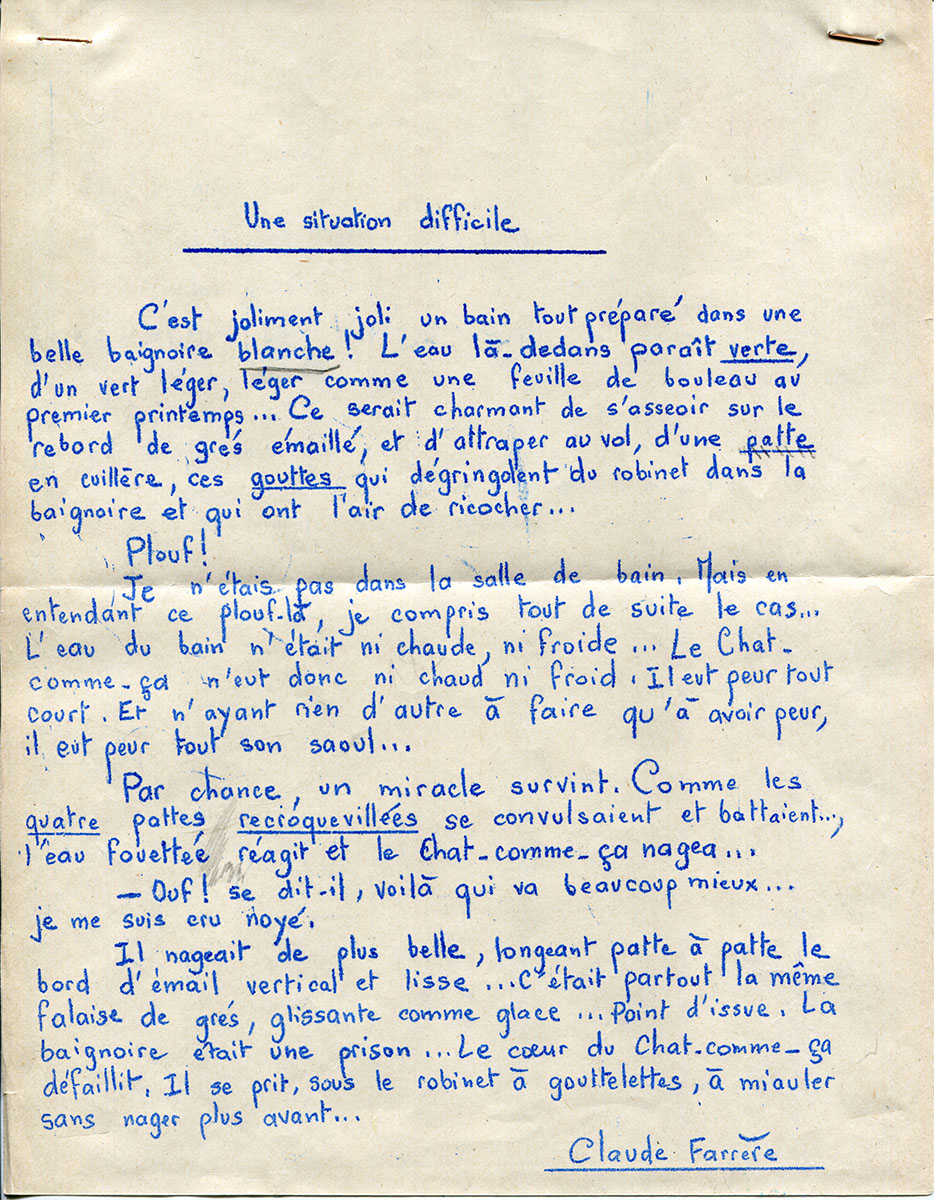 Une situation difficile
C'est joliment joli un bain tout préparé dans une
belle baignoire blanche ! L'eau là-dedans paraît verte,
d'un vert léger, léger comme une feuille de bouleau au
premier printemps... Ce serait charmant de s'asseoir sur le
rebord de grès émaillé, et d'attraper au vol, d'une patte
en cuillère, ces gouttes qui dégringolent du robinet dans la
baignoire et qui ont l'air de ricocher...
Plouf !
Je n'étais pas dans la salle de bain. Mais en
entendant ce plouf-là, je compris tout de suite le cas...
L'eau du bain n'était ni chaude, ni froide ... Le Chat-
comme-ça n'eut donc ni chaud ni froid. Il eut peur tout
court. Et n'ayant rien d'autre à faire qu'à avoir peur,
il eut peur tout son saoul...
Par chance, un miracle survint. Comme les
quatre pattes recroquevillées se convulsaient et battaient...,
l'eau fouetteé réagit et le Chat-comme-ça nagea...
- Ouf ! se dit-il, voilà qui va beaucoup mieux...
je me suis cru noyé.
Il nageait de plus belle, longeant patte à patte le
bord d'émail vertical et lisse ... C'était partout la même
falaise de grés, glissante comme glace ... Point d'issue. La
baignoire était une prison ... Le cœur du Chat-comme-ça
défaillit. Il se prit, sous le robinet à gouttelettes, à miauler
sans nager plus avant...
Claude Farrère